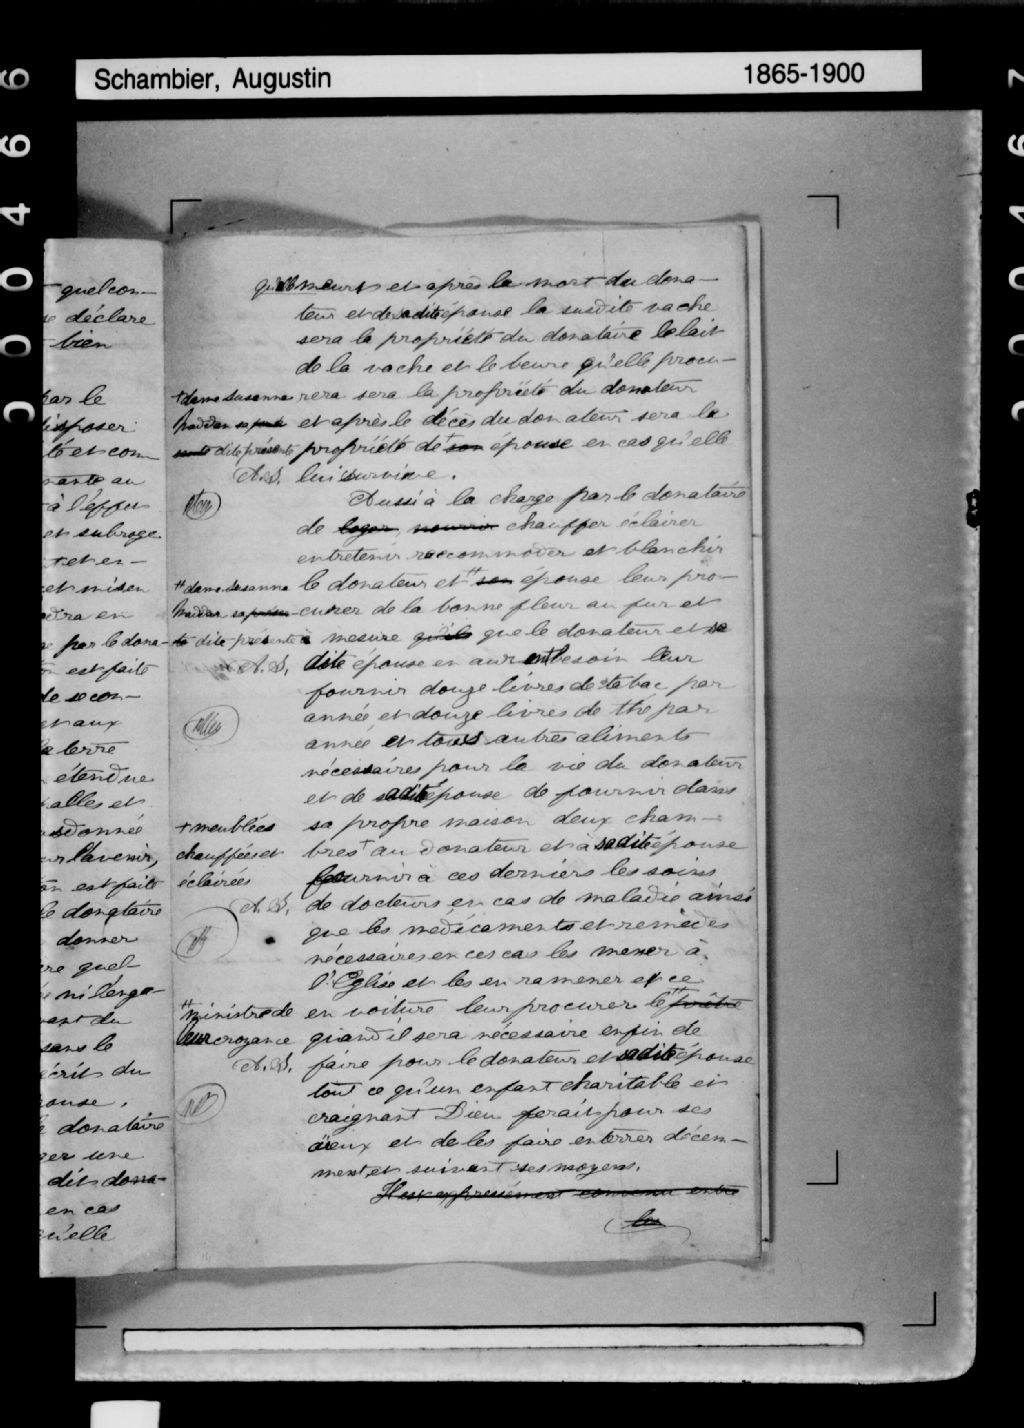 Schambier, Augustin
1865-1900
quelcon-
déclare
bien
par le
disposer
té et com
nante au
à l'effet
et subroge
et en-
et mis en
par le dona-
est faite
de se con-
et aux
la terre
étendue
alles et
donnée
l'avenir,
est faite
le donataire
donner
re quel-
ni l'enga-
vant du
sans le
écrit du
épouse.
donataire
ger une
dit dona-
en cas
qu'elle
meurt et après la mort du dona-
teur et de sadite épouse la susdite vache
sera la propriété du donataire le lait
de la vache et le beure qu'elle procu-
rera sera la propriété du donateur
et après le décès du donateur sera la
propriété de + son épouse en cas qu'elle
lui survive.
Aussi à la charge par le donataire
de loger, nourrir chauffer éclairer
entretenir raccommoder et blanchir
le donateur et # son épouse leur pro-
curer de la bonne fleur au fur et
à mesure qu'ils que le donateur et sa
dite épouse en auront besoin leur
fournir douze livres de tabac par
année et douze livres de thé par
année et tous autres aliments
nécessaires pour la vie du donateur
et de sadite épouse de fournir dans
sa propre maison deux cham-
bres + au donateur et à sadite épouse
fournir à ces derniers les soins
de docteurs en cas de maladie ainsi
que les médicaments et remèdes
nécessaires en ces cas les mener à
l'Eglise et les en ramener et ce
en voiture leur procurer le # prêtre
quand il sera nécessaire enfin de
faire pour le donateur et sadite épouse
tout ce qu'un enfant charitable et
craignant Dieu ferait pour ses
aïeux et de les faire enterrer décem-
ment et suivant ses moyens.
Il est expressément convenu entre
les
+ dame Susanna
dite présente
A.S.
# dame Susanna
te dite présente
A.S.
+ meublées
chauffées et
éclairées
A.S.
# ministre de
leur croyance
A.S.